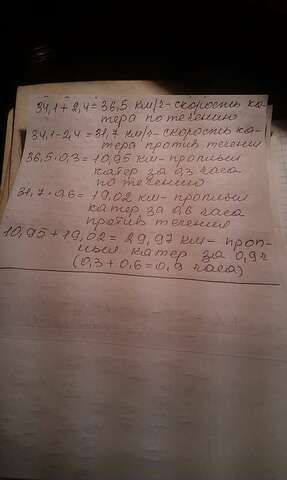 34,1 + 2,4 = 36,5 км/г - скорость ка-
тера по течению
34,1 - 2,4 = 31,7 км/г - скорость ка-
тера против течения
36,5 · 0,3 = 10,95 км - проплыл
катер за 0,3 часа
по течению
31,7 · 0,6 = 19,02 км - проплыл
катер за 0,6 часа
против течения
10,95 + 19,02 = 29,97 км - проп-
лыл катер за 0,9 ч
(0,3 + 0,6 = 0,9 часа)